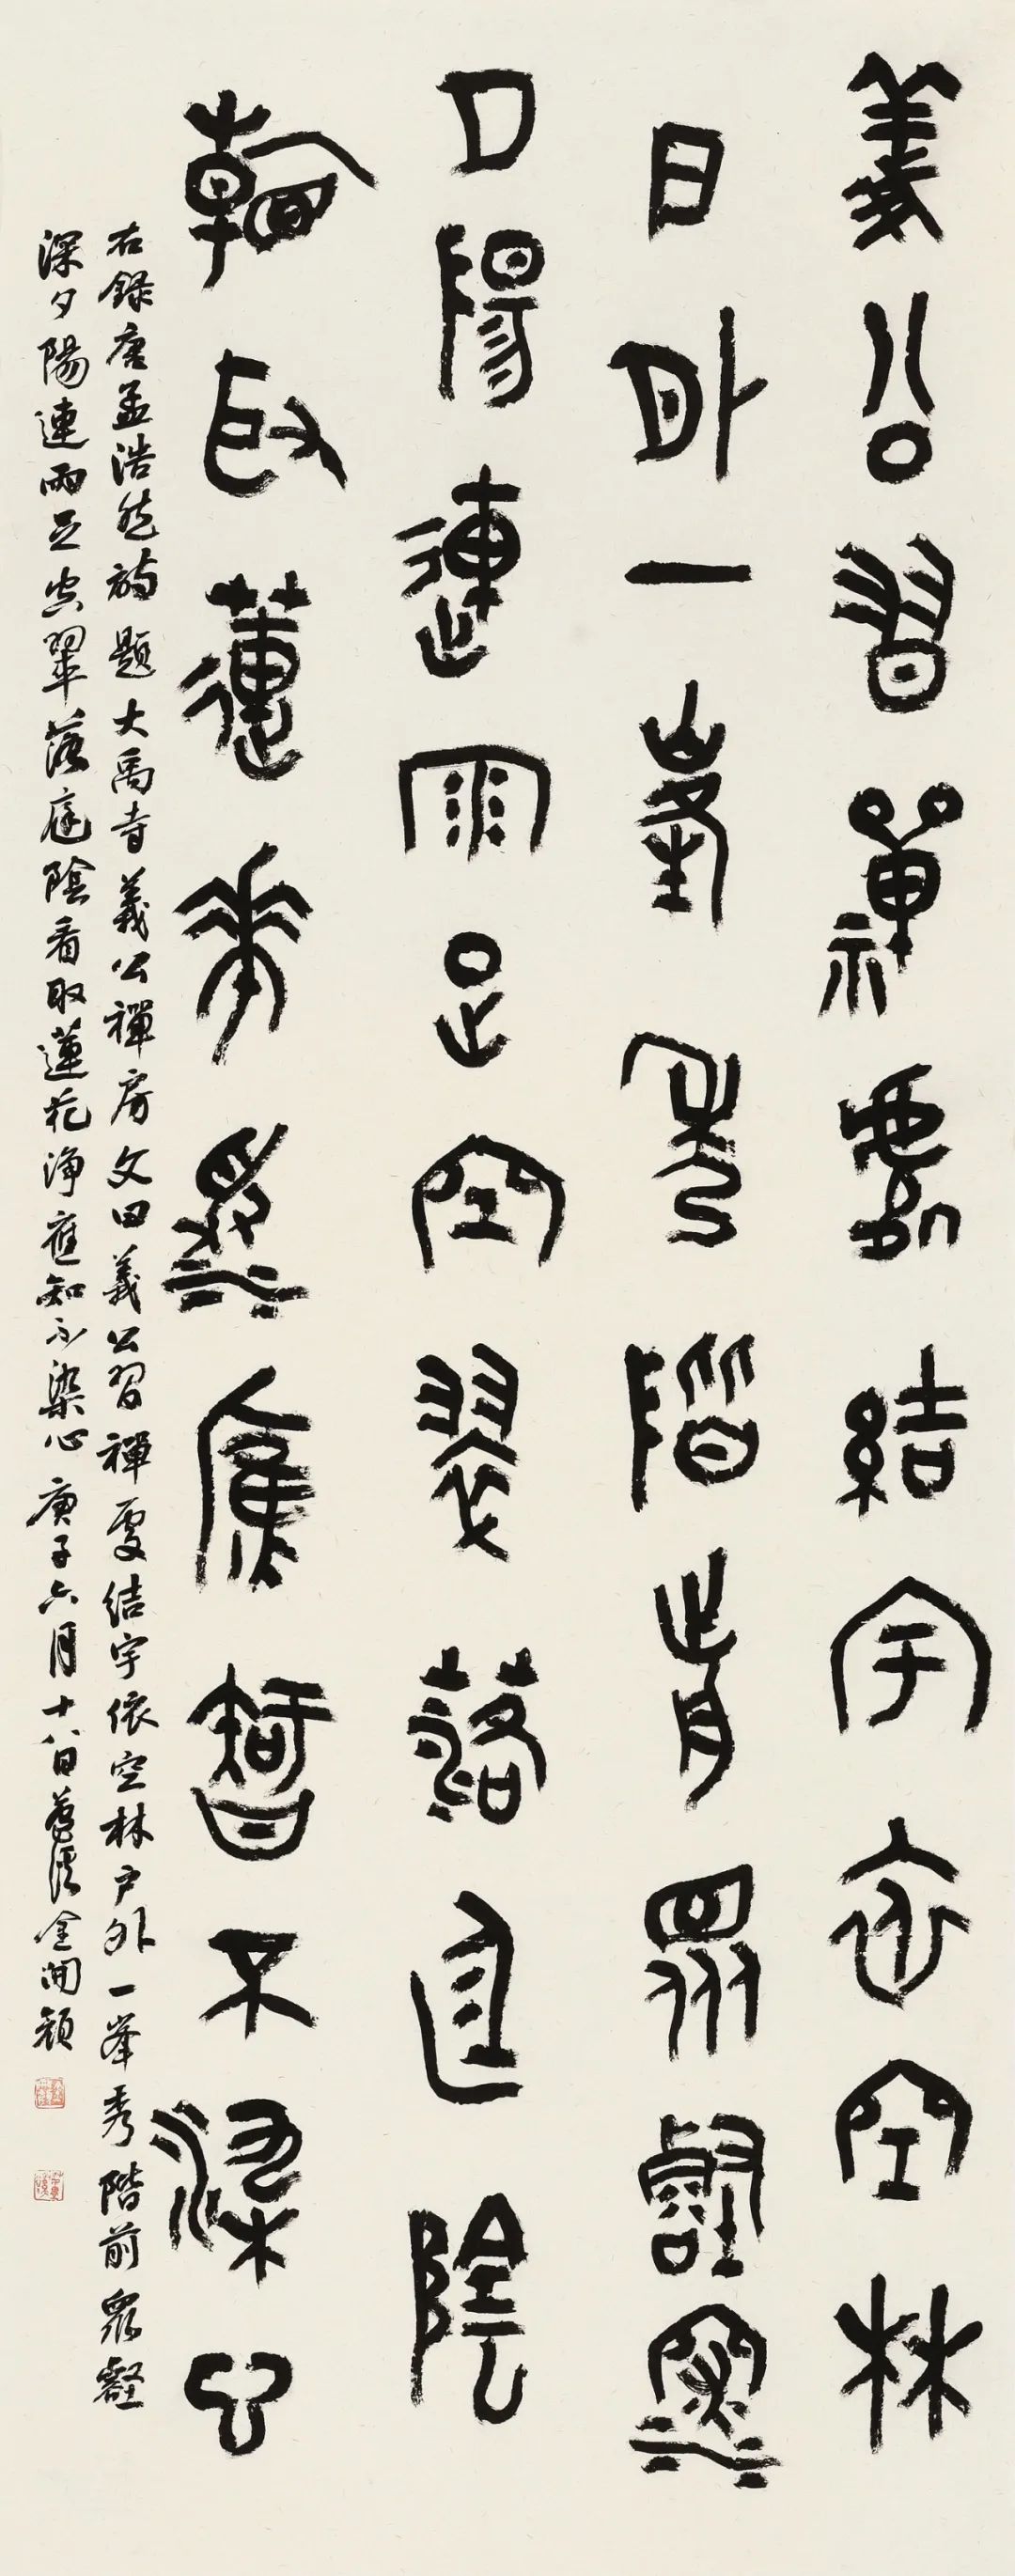 義公習禪處結宇依空林
戶外一峯秀階前眾壑深
夕陽連雨足空翠落庭陰
看取蓮花淨應知不染心
右錄唐孟浩然詩題大禹寺義公禪房文曰義公習禪處結宇依空林戶外一峯秀階前眾壑
深夕陽連雨足空翠落庭陰看取蓮花淨應知不染心庚子六月十八日